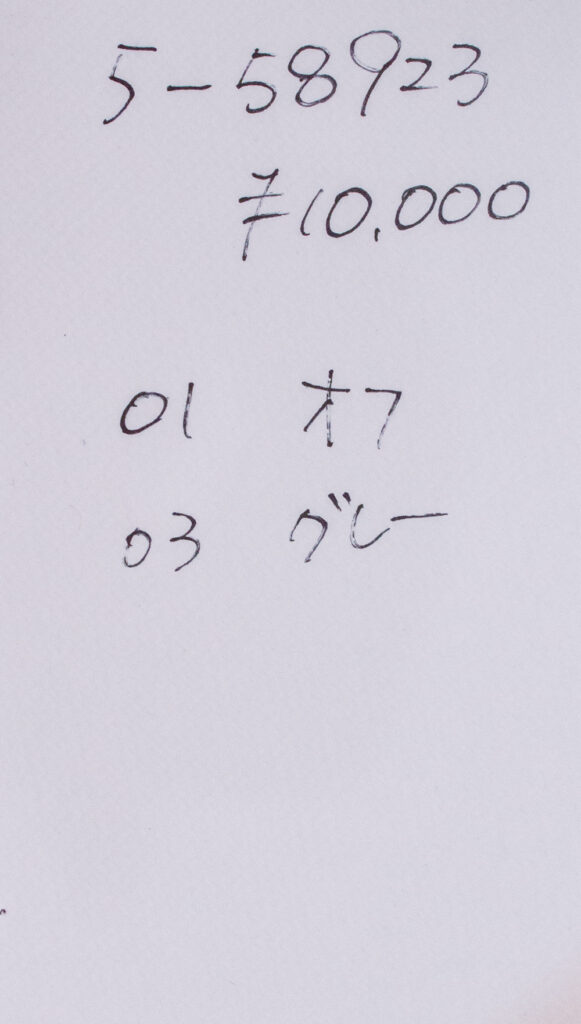 5-58923
¥10,000
01 オフ
03 グレー